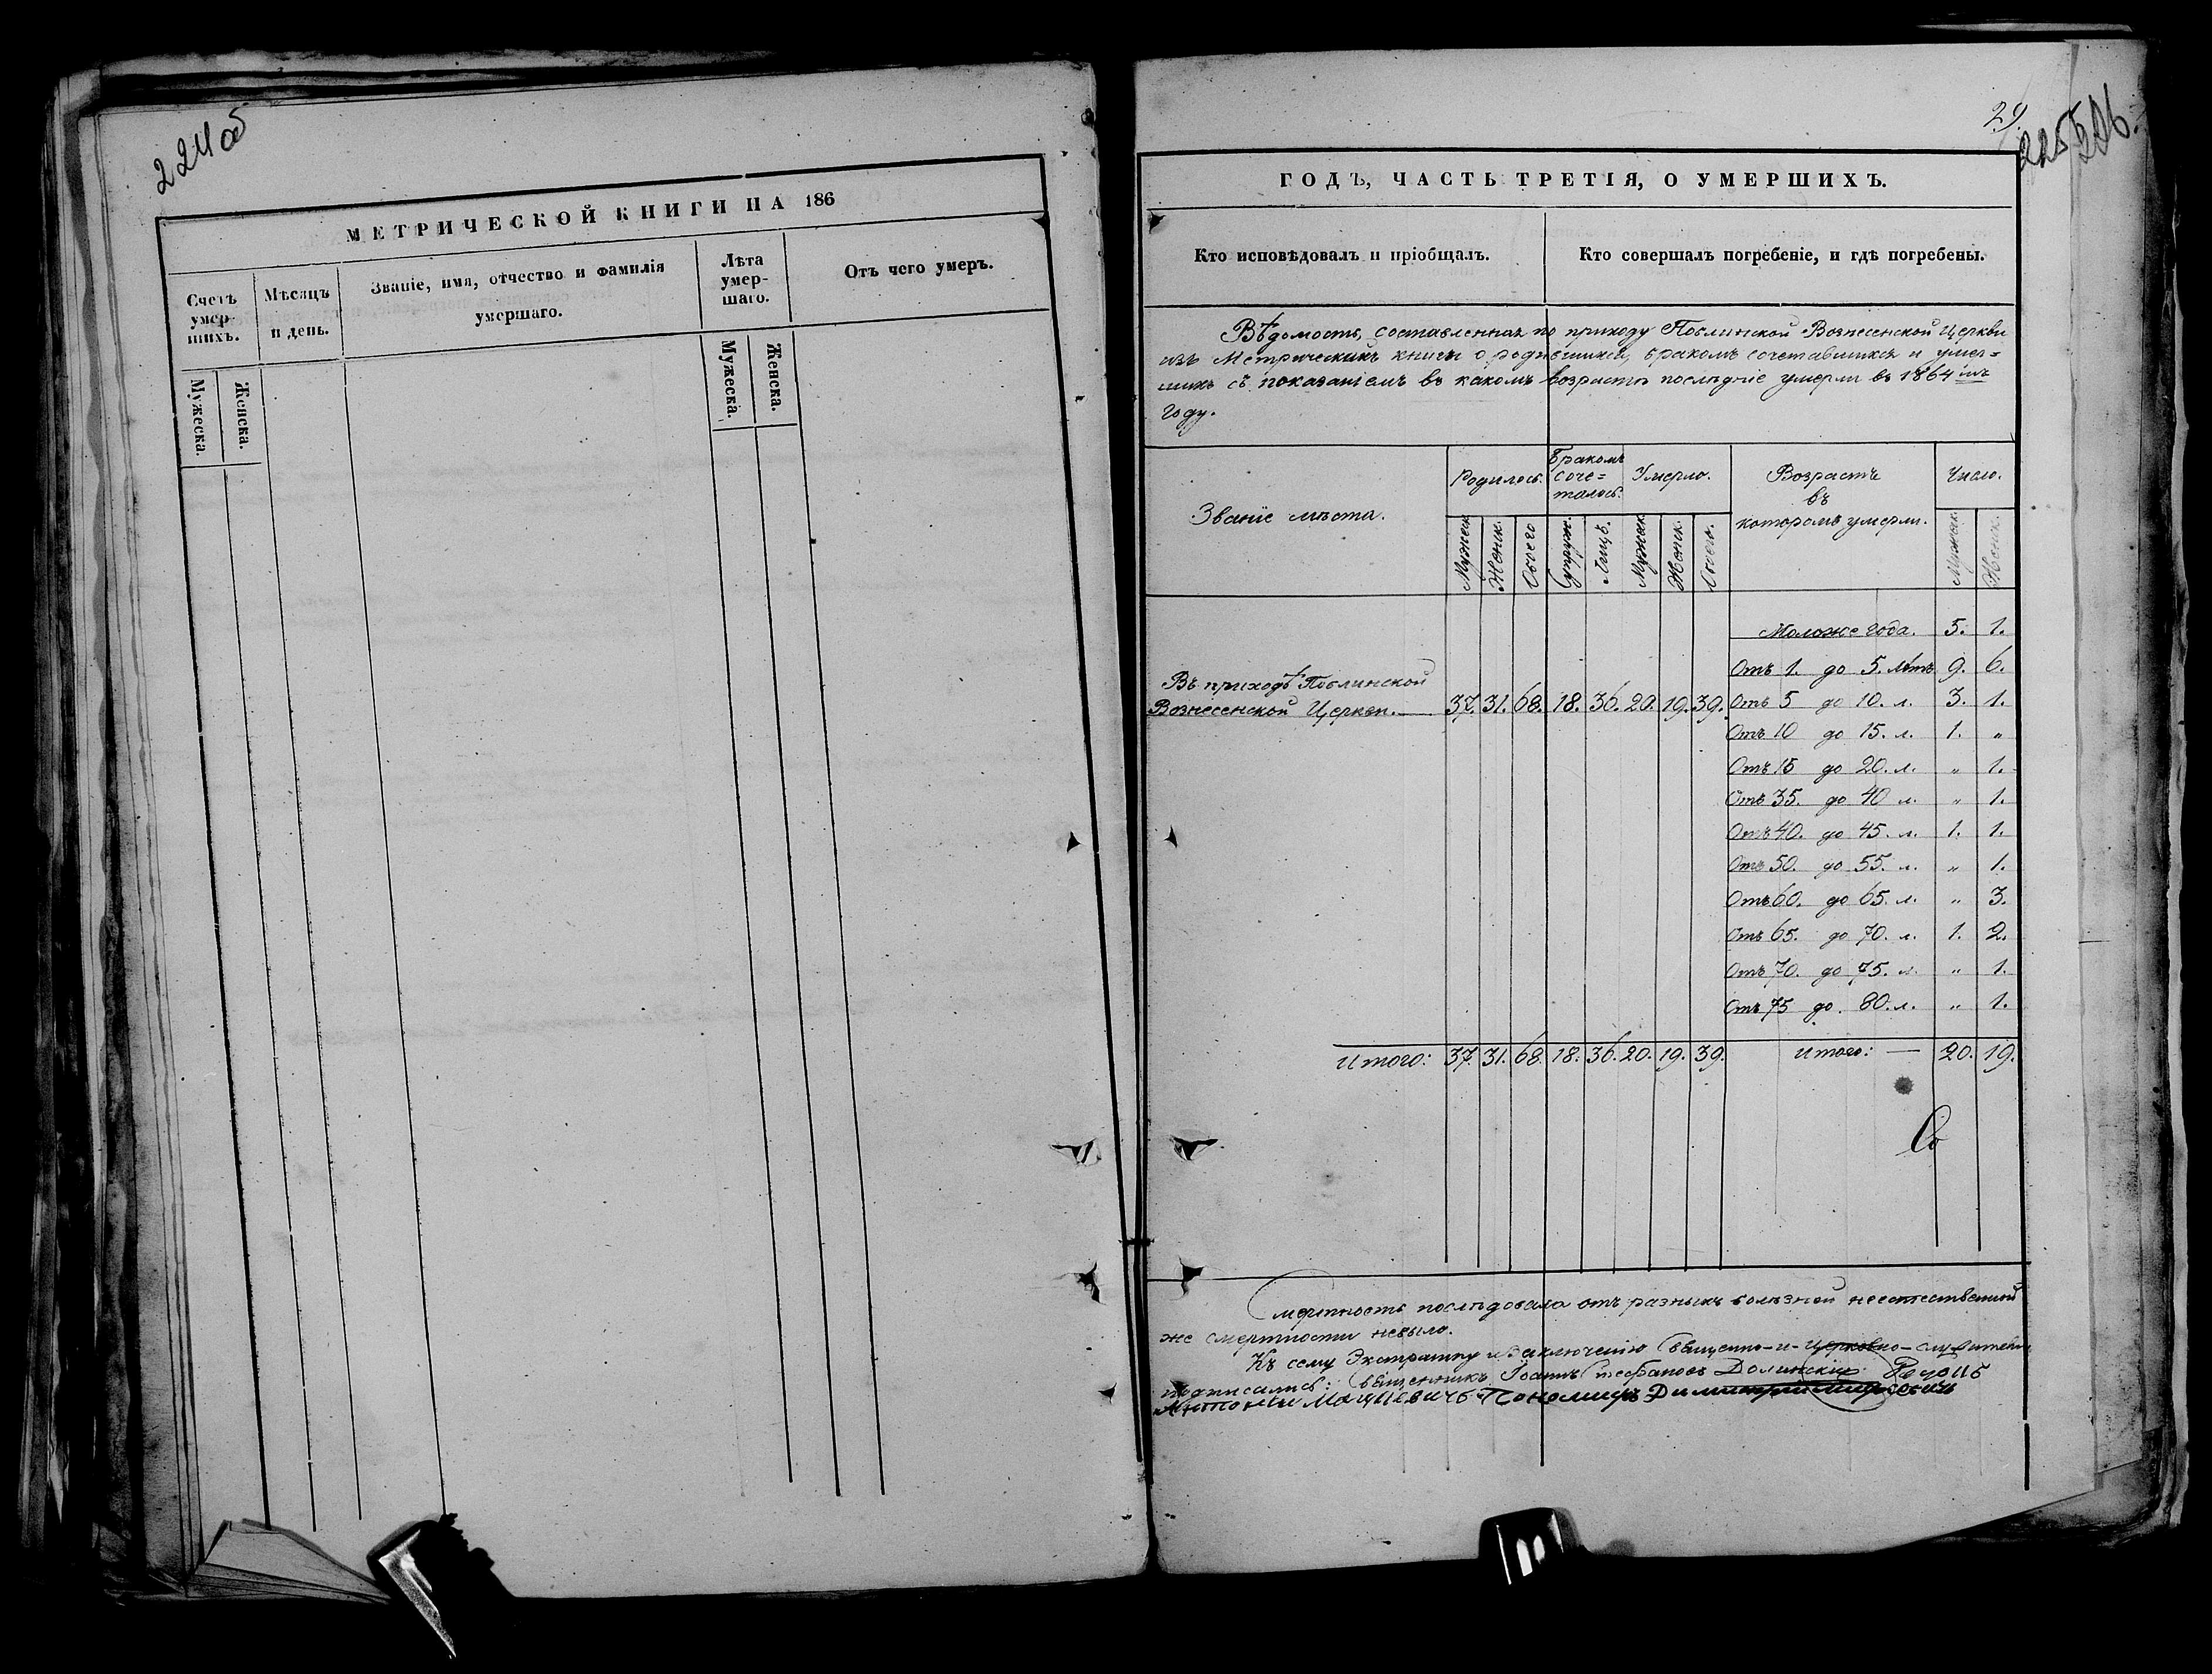 224 об
МЕТРИЧЕСКОЙ КНИГИ НА 186
Счетъ умер-шихъ.
Мѣсяцъ и день.
Званіе, имя, отчество и фамилія умершаго.
Лѣта умер-шаго.
Отъ чего умеръ.
Мужеска.
Женска.
Мужеска.
Женска.
29.
225
ГОДЪ, ЧАСТЬ ТРЕТІЯ, О УМЕРШИХЪ.
Кто исповѣдовалъ и пріобщалъ.
Кто совершалъ погребеніе, и гдѣ погребены.
Вѣдомость, составленная по приходу Вознесенской Церкви
изъ Метрическихъ книгъ о родившихся, бракомъ сочетавшихся и умер=
шихъ съ показаніемъ въ какомъ возрастѣ послѣдніе умерли въ 1864 мъ
году.
Званіе мѣста.
Родилось.
Бракомъ соче=талось.
Умерло.
Возрастъ въ которомъ умерли.
Число.
Мужеск. Женск. Обоего Супруж. Лицъ. Мужеск. Женск. Обоего. Мужеск. Женск.
Моложе года. 5. 1.
Отъ 1. до 5. лѣтъ 9. 6.
Въ приходѣ
Вознесенской Церкви. 37. 31. 68. 18. 36. 20. 19. 39. Отъ 5 до 10. л. 3. 1.
Отъ 10 до 15. л. 1. "
Отъ 15 до 20. л. " 1.
Отъ 35. до 40 л. " 1.
Отъ 40. до 45. л. 1. 1.
Отъ 50. до 55. л. " 1.
Отъ 60. до 65. л. " 3.
Отъ 65. до 70. л. 1. 2.
Отъ 70. до 75. л. " 1.
Отъ 75 до 80. л. " 1.
Итого: 37. 31. 68. 18. 36. 20. 19. 39. Итого: — 20. 19.
Смертность послѣдовала отъ разныхъ болѣзней неестественной
же смертности небыло.
Къ сему Экстракту и заключенію Священно-и-Церковно-служители
подписались: Священникъ Іоаннъ Стефановъ Долинскій
Антоній Мацѣевичъ Пономарь Димитрій